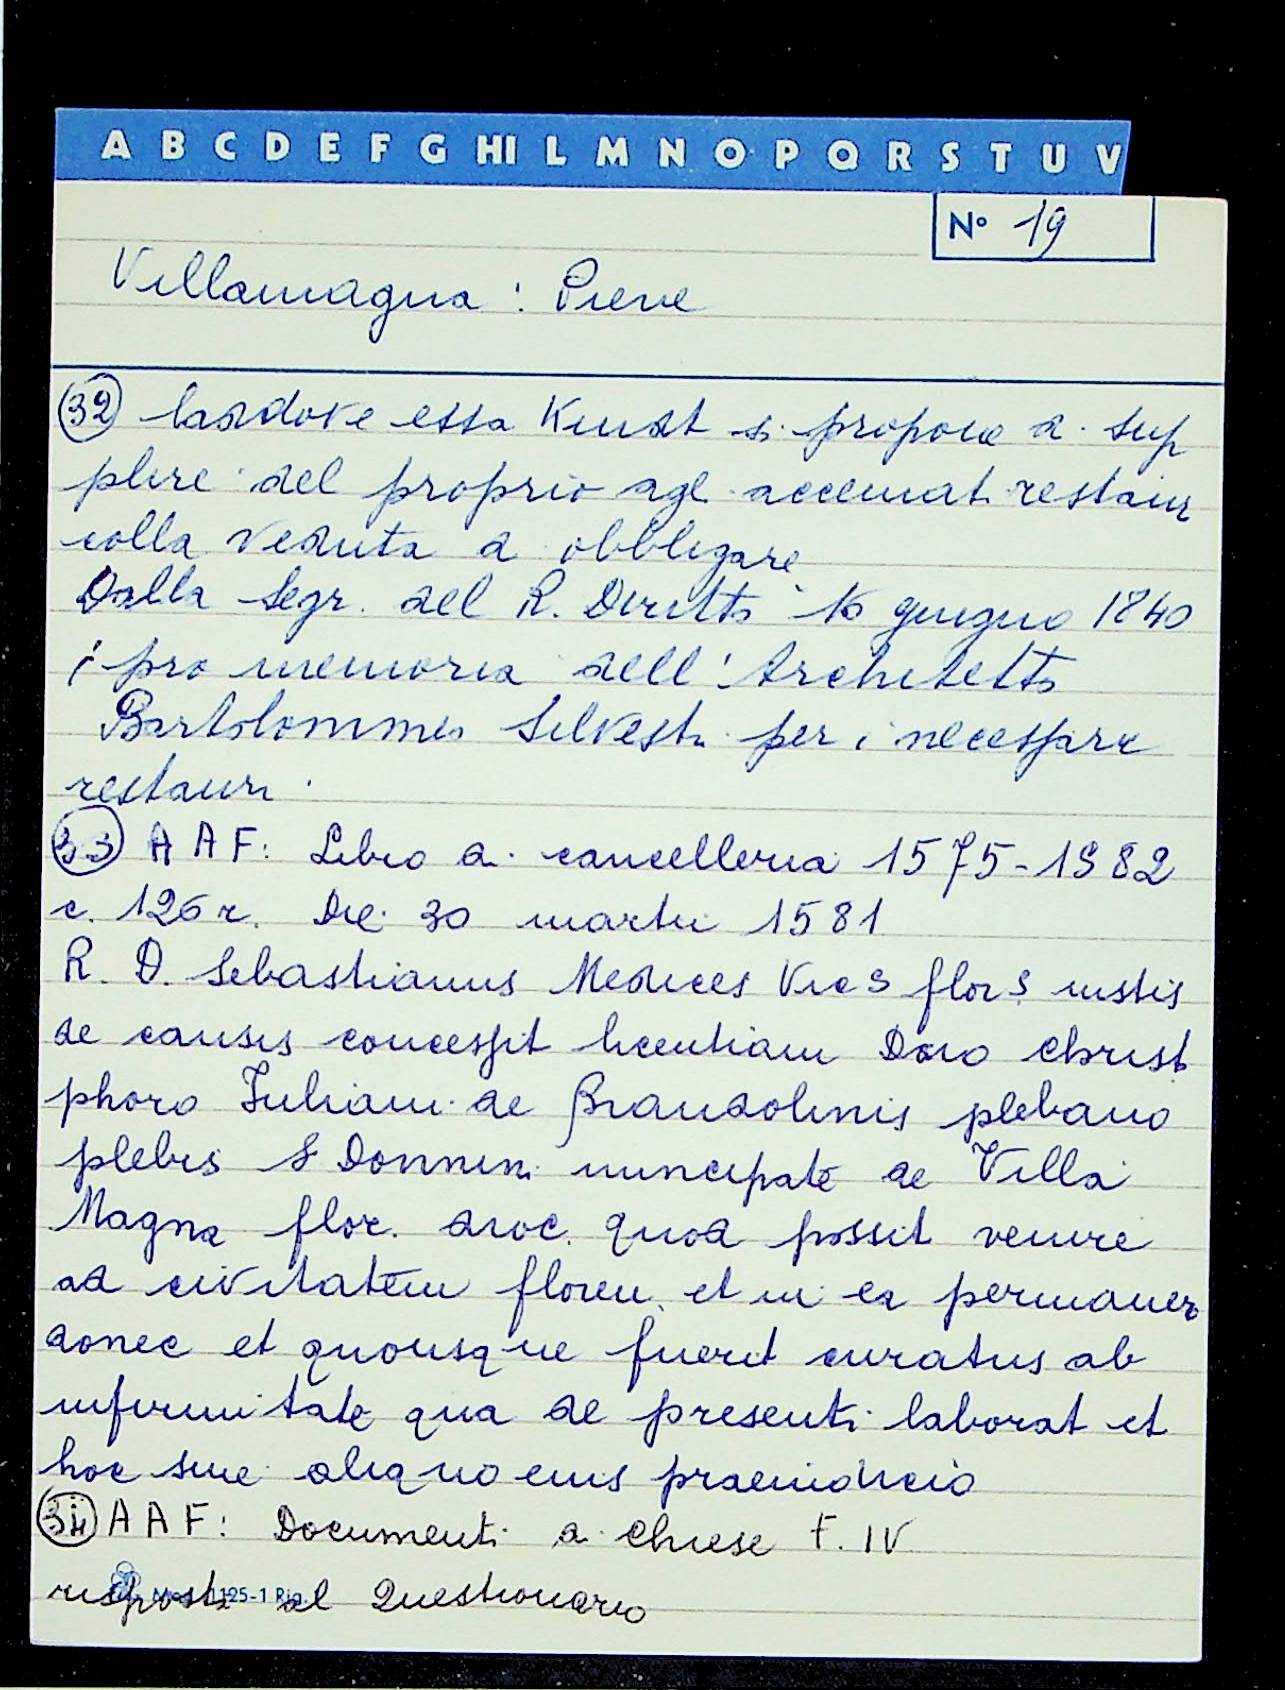 A B C D E F G HI L M N O P Q R S T U V
N° 19
Villamagna : Pieve
32 laddove essa Kindt si propone di sup
plire del proprio agl accennati restaur
colla veduta d obbligare
Dalla Segr. del R. Diritto 16 giugno 1840
i pro memoria dell'Architetto
Bartolommeo Silvestri per i necessari
restauri.
33 A A F: Libro di cancelleria 1575-1982
c. 126 r. Die 30 martii 1581
R. D. Sebastianus Medices Vics flors iustis
de causis concessit licentiam Dno Christ
phoro Iuliani de Brandolinis plebano
plebis S Donnini nuncipate de Villa
Magna flor. dioc. quod possit venire
ad civitatem floren. et in ea permaner
donec et quousque fuerit curatus ab
infirmitate qua de presenti laborat et
hoc sine aliquo eius praeiudicio
34 A A F: Documenti di chiese F. IV
risposti al Questionario
1125-1 Rig.